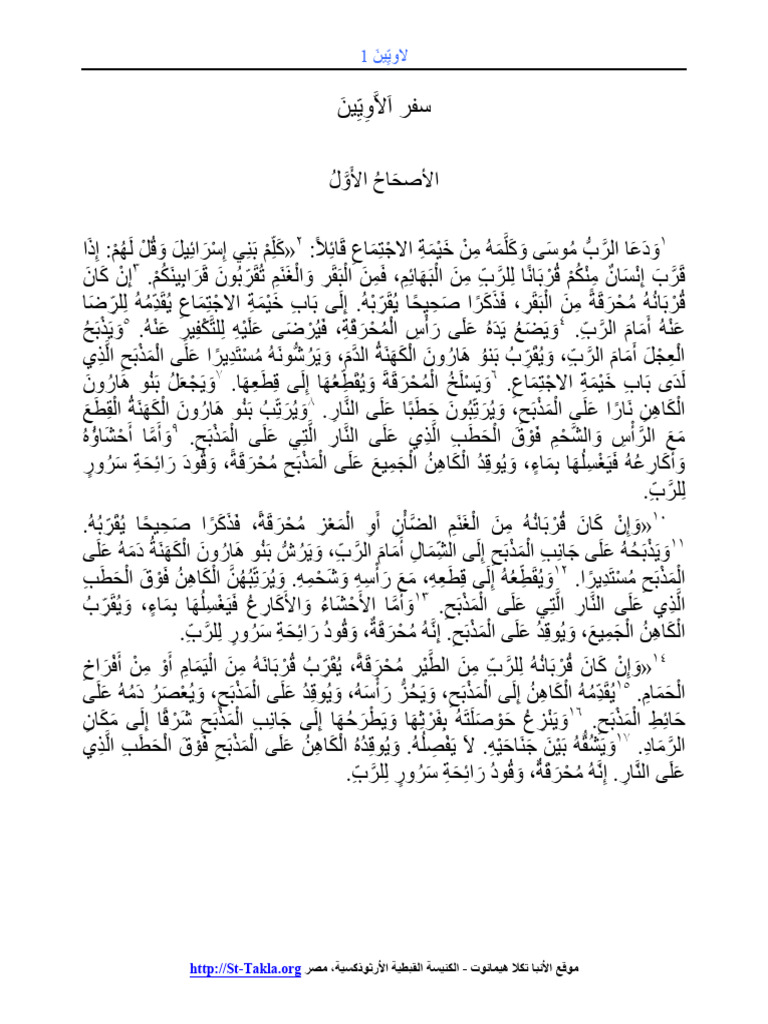 لاويِّينَ 1
سفر اَللاَّوِيِّينَ
الأصحَاحُ الأَوَّلُ
١وَدَعَا الرَّبُّ مُوسَى وَكَلَّمَهُ مِنْ خَيْمَةِ الاجْتِمَاعِ قَائِلاً: ٢«كَلِّمْ بَنِي إِسْرَائِيلَ وَقُلْ لَهُمْ: إِذَا
قَرَّبَ إِنْسَانٌ مِنْكُمْ قُرْبَانًا لِلرَّبِّ مِنَ الْبَهَائِمِ، فَمِنَ الْبَقَرِ وَالْغَنَمِ تُقَرِّبُونَ قَرَابِينَكُمْ. ٣إِنْ كَانَ
قُرْبَانُهُ مُحْرَقَةً مِنَ الْبَقَرِ، فَذَكَرًا صَحِيحًا يُقَرِّبْهُ. إِلَى بَابِ خَيْمَةِ الاجْتِمَاعِ يُقَدِّمُهُ لِلرِّضَا
عَنْهُ أَمَامَ الرَّبِّ. ٤وَيَضَعُ يَدَهُ عَلَى رَأْسِ الْمُحْرَقَةِ، فَيُرْضَى عَلَيْهِ لِلتَّكْفِيرِ عَنْهُ. ٥وَيَذْبَحُ
الْعِجْلَ أَمَامَ الرَّبِّ، وَيُقَرِّبُ بَنُو هَارُونَ الْكَهَنَةُ الدَّمَ، وَيَرُشُّونَهُ مُسْتَدِيرًا عَلَى الْمَذْبَحِ الَّذِي
لَدَى بَابِ خَيْمَةِ الاجْتِمَاعِ. ٦وَيَسْلَخُ الْمُحْرَقَةَ وَيُقَطِّعُهَا إِلَى قِطَعِهَا. ٧وَيَجْعَلُ بَنُو هَارُونَ
الْكَاهِنِ نَارًا عَلَى الْمَذْبَحِ، وَيُرَتِّبُونَ حَطَبًا عَلَى النَّارِ. ٨وَيُرَتِّبُ بَنُو هَارُونَ الْكَهَنَةُ الْقِطَعَ
مَعَ الرَّأْسِ وَالشَّحْمِ فَوْقَ الْحَطَبِ الَّذِي عَلَى النَّارِ الَّتِي عَلَى الْمَذْبَحِ. ٩وَأَمَّا أَحْشَاؤُهُ
وَأَكَارِعُهُ فَيَغْسِلُهَا بِمَاءٍ، وَيُوقِدُ الْكَاهِنُ الْجَمِيعَ عَلَى الْمَذْبَحِ مُحْرَقَةً، وَقُودَ رَائِحَةِ سَرُورٍ
لِلرَّبِّ.
١٠«وَإِنْ كَانَ قُرْبَانُهُ مِنَ الْغَنَمِ الضَّأْنِ أَوِ الْمَعْزِ مُحْرَقَةً، فَذَكَرًا صَحِيحًا يُقَرِّبُهُ.
١١وَيَذْبَحُهُ عَلَى جَانِبِ الْمَذْبَحِ إِلَى الشِّمَالِ أَمَامَ الرَّبِّ، وَيَرُشُّ بَنُو هَارُونَ الْكَهَنَةُ دَمَهُ عَلَى
الْمَذْبَحِ مُسْتَدِيرًا. ١٢وَيُقَطِّعُهُ إِلَى قِطَعِهِ، مَعَ رَأْسِهِ وَشَحْمِهِ. وَيُرَتِّبُهُنَّ الْكَاهِنُ فَوْقَ الْحَطَبِ
الَّذِي عَلَى النَّارِ الَّتِي عَلَى الْمَذْبَحِ. ١٣وَأَمَّا الأَحْشَاءُ وَالأَكَارِعُ فَيَغْسِلُهَا بِمَاءٍ، وَيُقَرِّبُ
الْكَاهِنُ الْجَمِيعَ، وَيُوقِدُ عَلَى الْمَذْبَحِ. إِنَّهُ مُحْرَقَةٌ، وَقُودُ رَائِحَةِ سَرُورٍ لِلرَّبِّ.
١٤«وَإِنْ كَانَ قُرْبَانُهُ لِلرَّبِّ مِنَ الطَّيْرِ مُحْرَقَةً، يُقَرِّبُ قُرْبَانَهُ مِنَ الْيَمَامِ أَوْ مِنْ أَفْرَاخِ
الْحَمَامِ. ١٥يُقَدِّمُهُ الْكَاهِنُ إِلَى الْمَذْبَحِ، وَيَحُزُّ رَأْسَهُ، وَيُوقِدُ عَلَى الْمَذْبَحِ، وَيُعْصَرُ دَمُهُ عَلَى
حَائِطِ الْمَذْبَحِ. ١٦وَيَنْزِعُ حَوْصَلَتَهُ بِفَرْثِهَا وَيَطْرَحُهَا إِلَى جَانِبِ الْمَذْبَحِ شَرْقًا إِلَى مَكَانِ
الرَّمَادِ. ١٧وَيَشُقُّهُ بَيْنَ جَنَاحَيْهِ. لاَ يَفْصِلُهُ. وَيُوقِدُهُ الْكَاهِنُ عَلَى الْمَذْبَحِ فَوْقَ الْحَطَبِ الَّذِي
عَلَى النَّارِ. إِنَّهُ مُحْرَقَةٌ، وَقُودُ رَائِحَةِ سَرُورٍ لِلرَّبِّ.
موقع الأنبا تكلا هيمانوت - الكنيسة القبطية الأرثوذكسية، مصر http://St-Takla.org